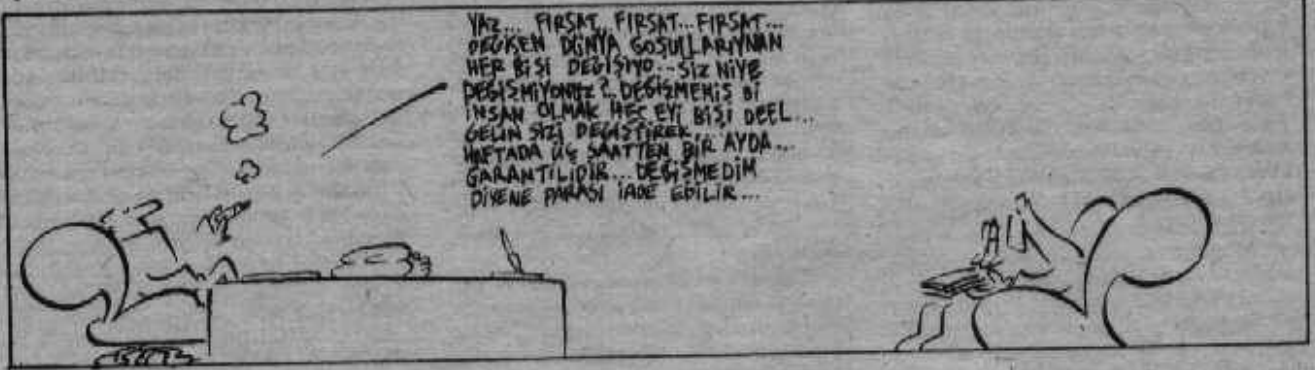 YAZ... FIRSAT, FIRSAT...FIRSAT...
DEĞİŞEN DÜNYA GOŞULLARIYNAN
HER BİŞİ DEĞİŞİYO...SİZ NİYE
DEĞİŞMİYONUZ?..DEĞİŞMEMİŞ Bİ
İNSAN OLMAK HEÇ EYİ BİŞİ DEEL...
GELİN SİZİ DEĞİŞTİREK,
HAFTADA ÜÇ SAATTEN BİR AYDA...
GARANTİLİDİR...DEĞİŞMEDİM
DİYENE PARASI İADE EDİLİR...